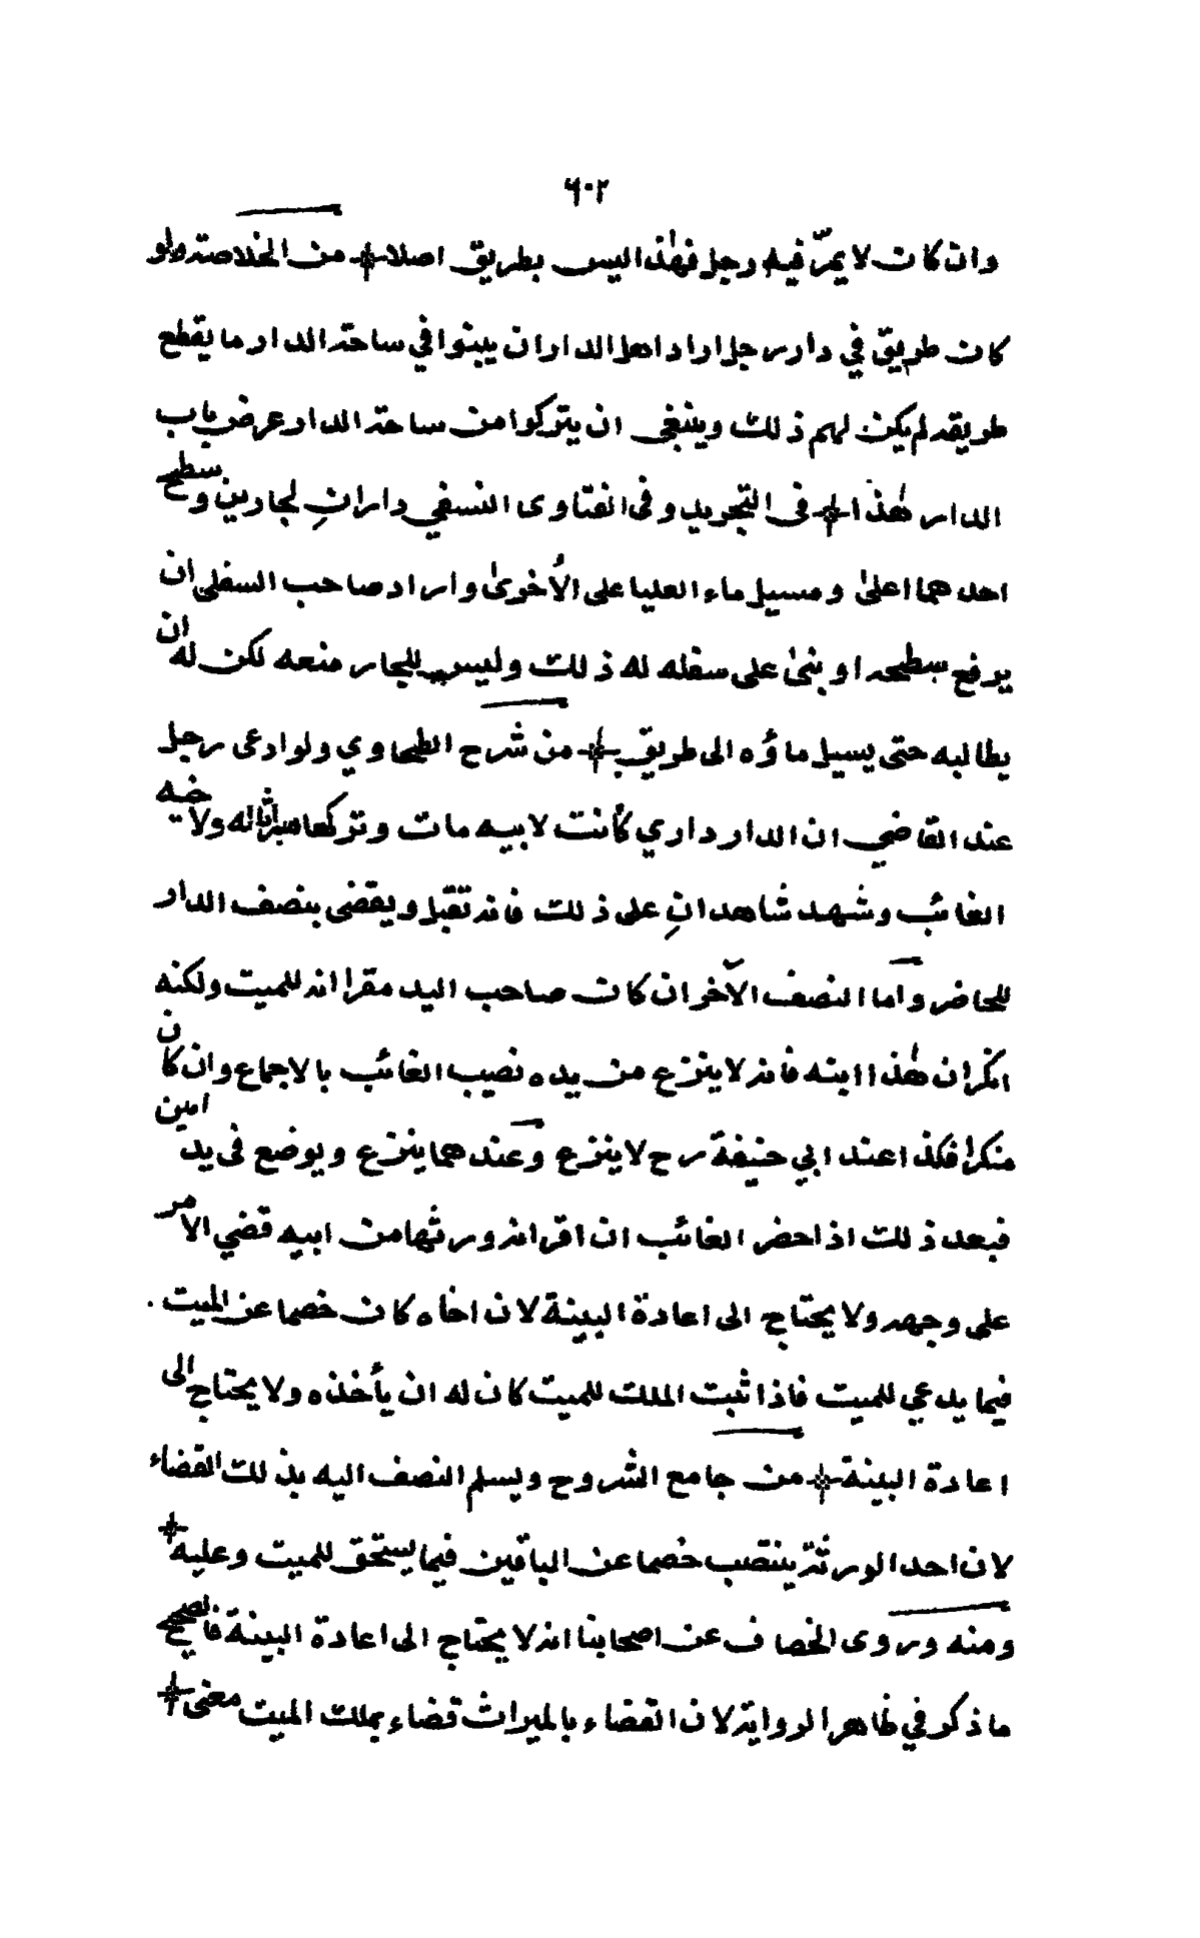 ٦٠٢
وان كان لا يمرّ فيه رجل فهٰذا ليس بطريق اصلا ⁜ من الخلاصة ولو
كان طريق في دار رجل اراد اهل الدار ان يبنوا في ساحة الدار ما يقطع
طريقه لم يكن لهم ذلك وينبغي ان يتركوا من ساحة الدار عرض باب
الدار هٰذا ⁜ فى التجريد وفى الفتاوى النسفي داران لجارين وسطح
احدهما اعلىٰ ومسيل ماء العليا على الأُخرىٰ واراد صاحب السفلى ان
يرفع سطحه او بنىٰ على سفله له ذلك وليس للجار منعه لكن له ان
يطالبه حتى يسيل ماؤه الى طريق ⁜ من شرح الطحاوي ولو ادعى رجل
عند القاضي ان الدار داري كأنت لابيه مات وتركها ميراثا له ولاخيه
الغائب وشهد شاهدانِ على ذلك فانه تقبل ويقضى بنصف الدار
للحاضر واما النصف الآخر ان كان صاحب اليد مقرا انه للميت ولكنه
انكر ان هٰذا ابنه فانه لا ينزع من يده نصيب الغائب بالاجماع وان كان
منكرا فكذا عند ابي حنيفة رح لا ينزع وعندهما ينزع ويوضع فى يد امين
فبعد ذلك اذا حضر الغائب ان اقر انه ورثها من ابيه قضي الامر
على وجهه ولا يحتاج الى اعادة البينة لان اخاه كان خصما عن الميت
فيما يدعي للميت فاذا ثبت الملك للميت كان له ان يأخذه ولا يحتاج الى
اعادة البينة ⁜ من جامع الشروح ويسلم النصف اليه بذلك القضاء
لان احد الورثة ينتصب خصما عن الباقين فيما يستحق للميت وعليه ⁜
ومنه وروى الخصاف عن اصحابنا انه لا يحتاج الى اعادة البينة فالصحيح
ما ذكر في ظاهر الرواية لان القضاء بالميراث قضاء بملك الميت معنى ⁜